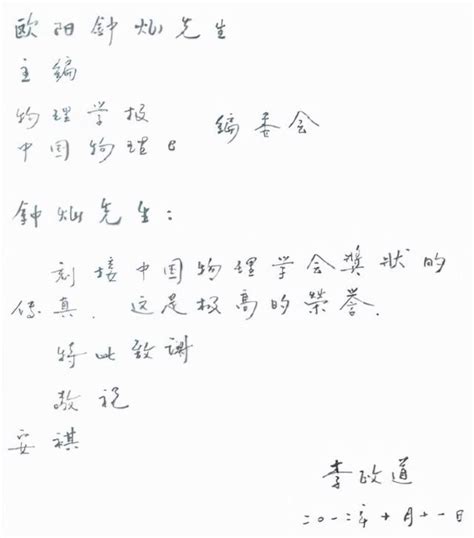 欧阳钟灿先生
主编
物理学报
中国物理B 编委会
钟灿先生：
刻接中国物理学会獎状的
传真．这是极高的荣誉．
特此致谢
敬祝
安祺
李政道
二〇一二年十月十一日